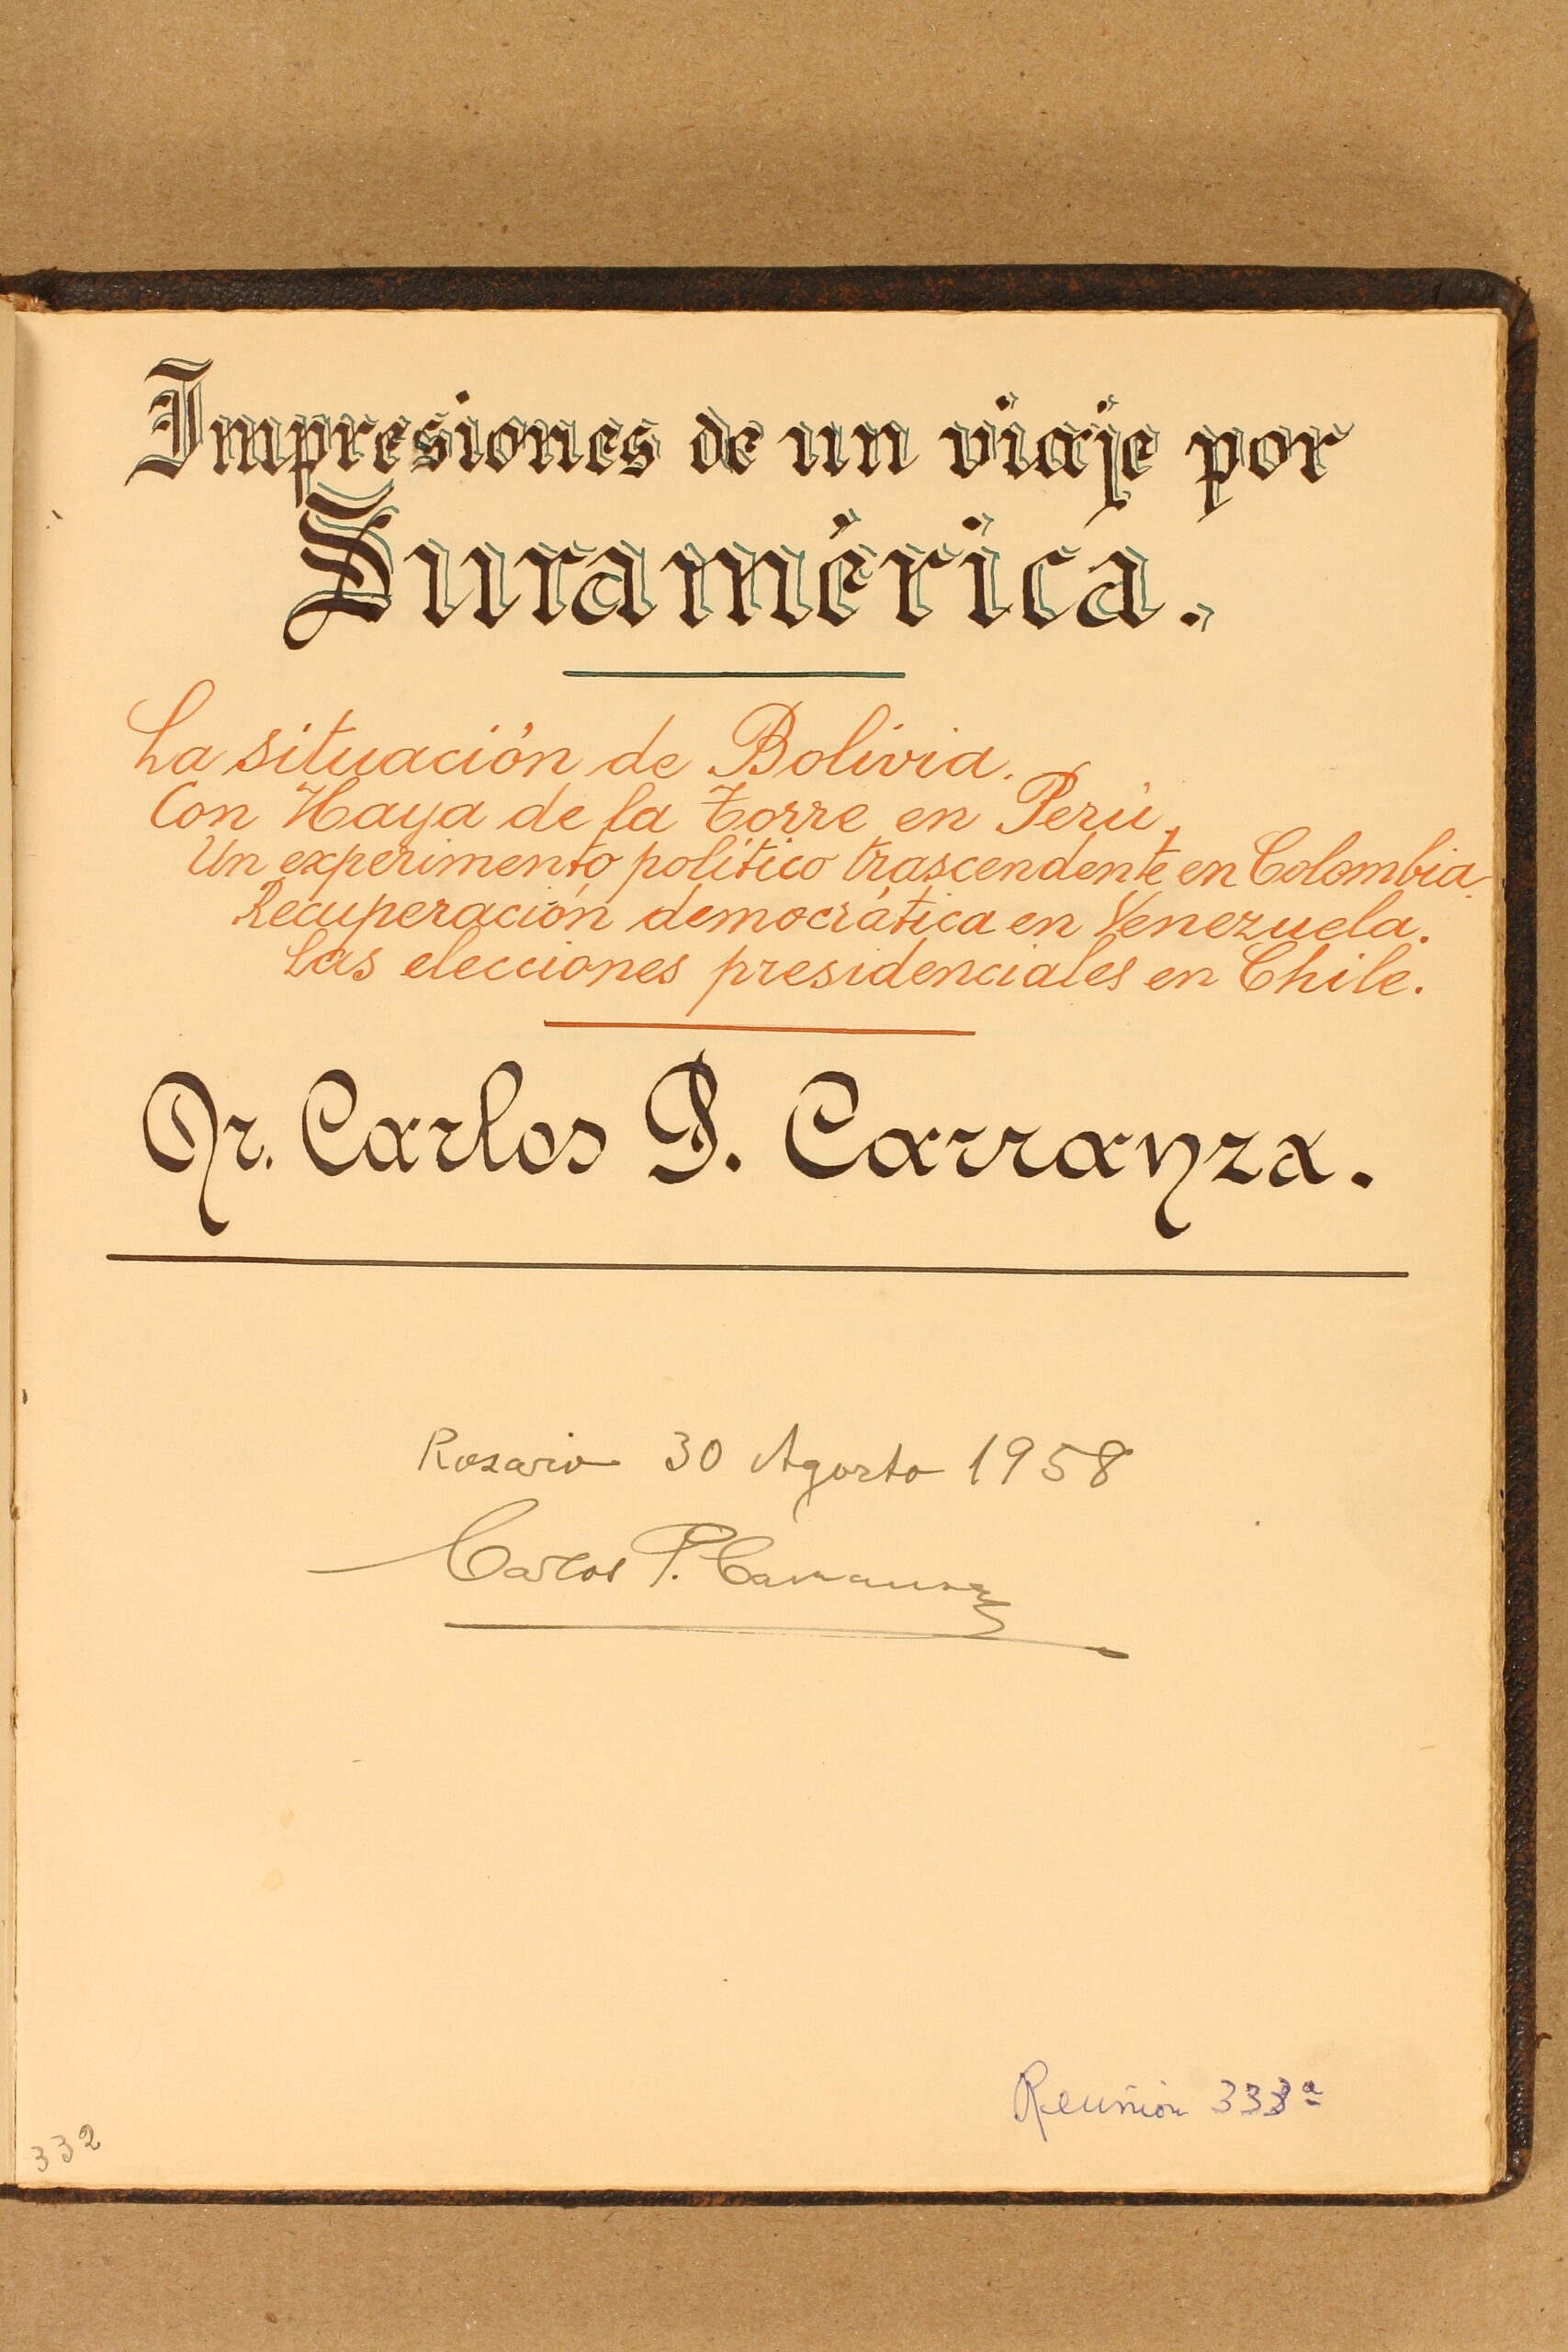 Impresiones de un viaje por
Suramérica.
La situación de Bolivia.
Con Haya de la Torre en Perú.
Un experimento político trascendente en Colombia.
Recuperación democrática en Venezuela.
Las elecciones presidenciales en Chile.
Dr. Carlos P. Carranza.
Rosario 30 Agosto 1958
Carlos P. Carranza
Reunión 333ª
332